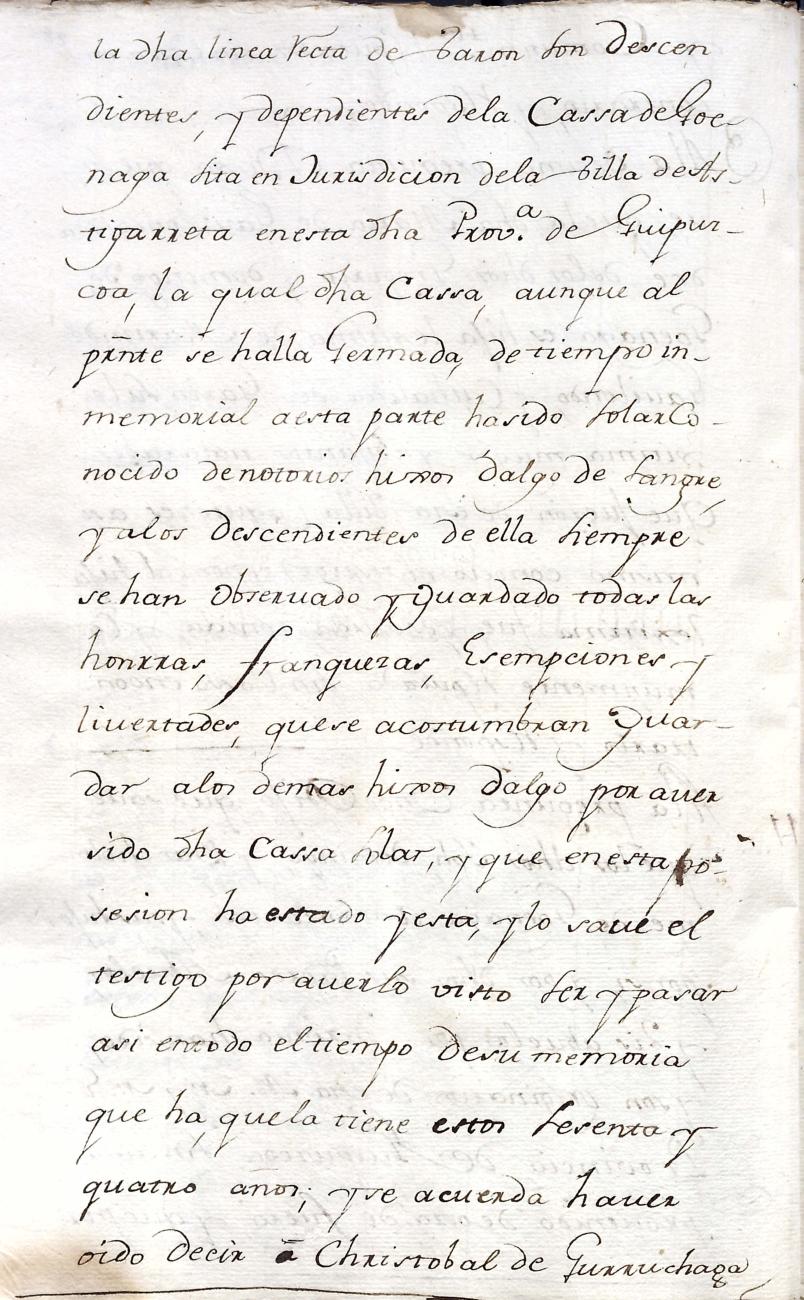 la dha linea recta de Baron son descen
dientes, y dependientes dela Cassa de Goe-
naga sita en Jurisdicion dela Billa de As-
tigarreta en esta dha Prov.ª de Guipuz-
coa, la qual dha Cassa, aunque al
prnte se halla Germada, de tiempo in-
memorial a esta parte ha sido solar Co-
nocido de notorios hixos dalgo de sangre,
y alos descendientes de ella siempre
se han observado y Guardado todas las
honrras, franquezas, Esempciones y
livertades, que se acostumbran Guar-
dar alos demas hixos dalgo por aver
sido dha Cassa solar, y que en esta po-
sesion ha estado y esta, y lo save el
testigo por averlo visto ser y pasar
asi en todo el tiempo de su memoria
que ha, que la tiene estos sesenta y
quatro años, y se acuerda haver
oido decir á Christobal de Gurruchaga